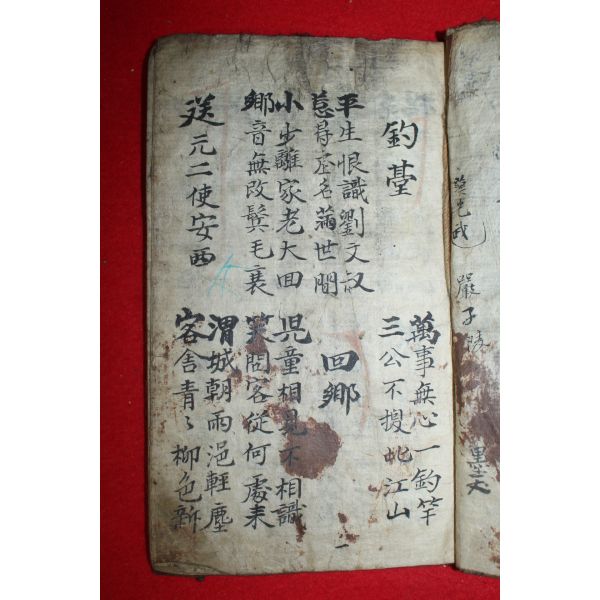 嚴子陵
釣臺
萬事無心一釣竿
三公不換此江山
平生恨識劉文叔
惹得虛名滿世間
回鄉
小少離家老大回
鄉音無改鬢毛衰
児童相見不相識
笑問客從何處来
送元二使安西
渭城朝雨浥輕塵
客舍青〻柳色新
一